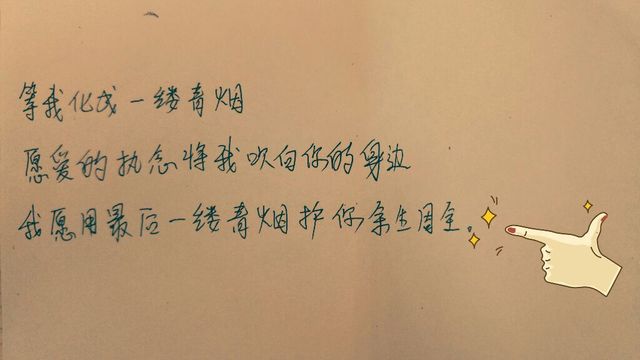 等我化成一缕青烟
愿爱的执念将我吹向你的身边
我愿用最后一缕青烟护你余生周全。